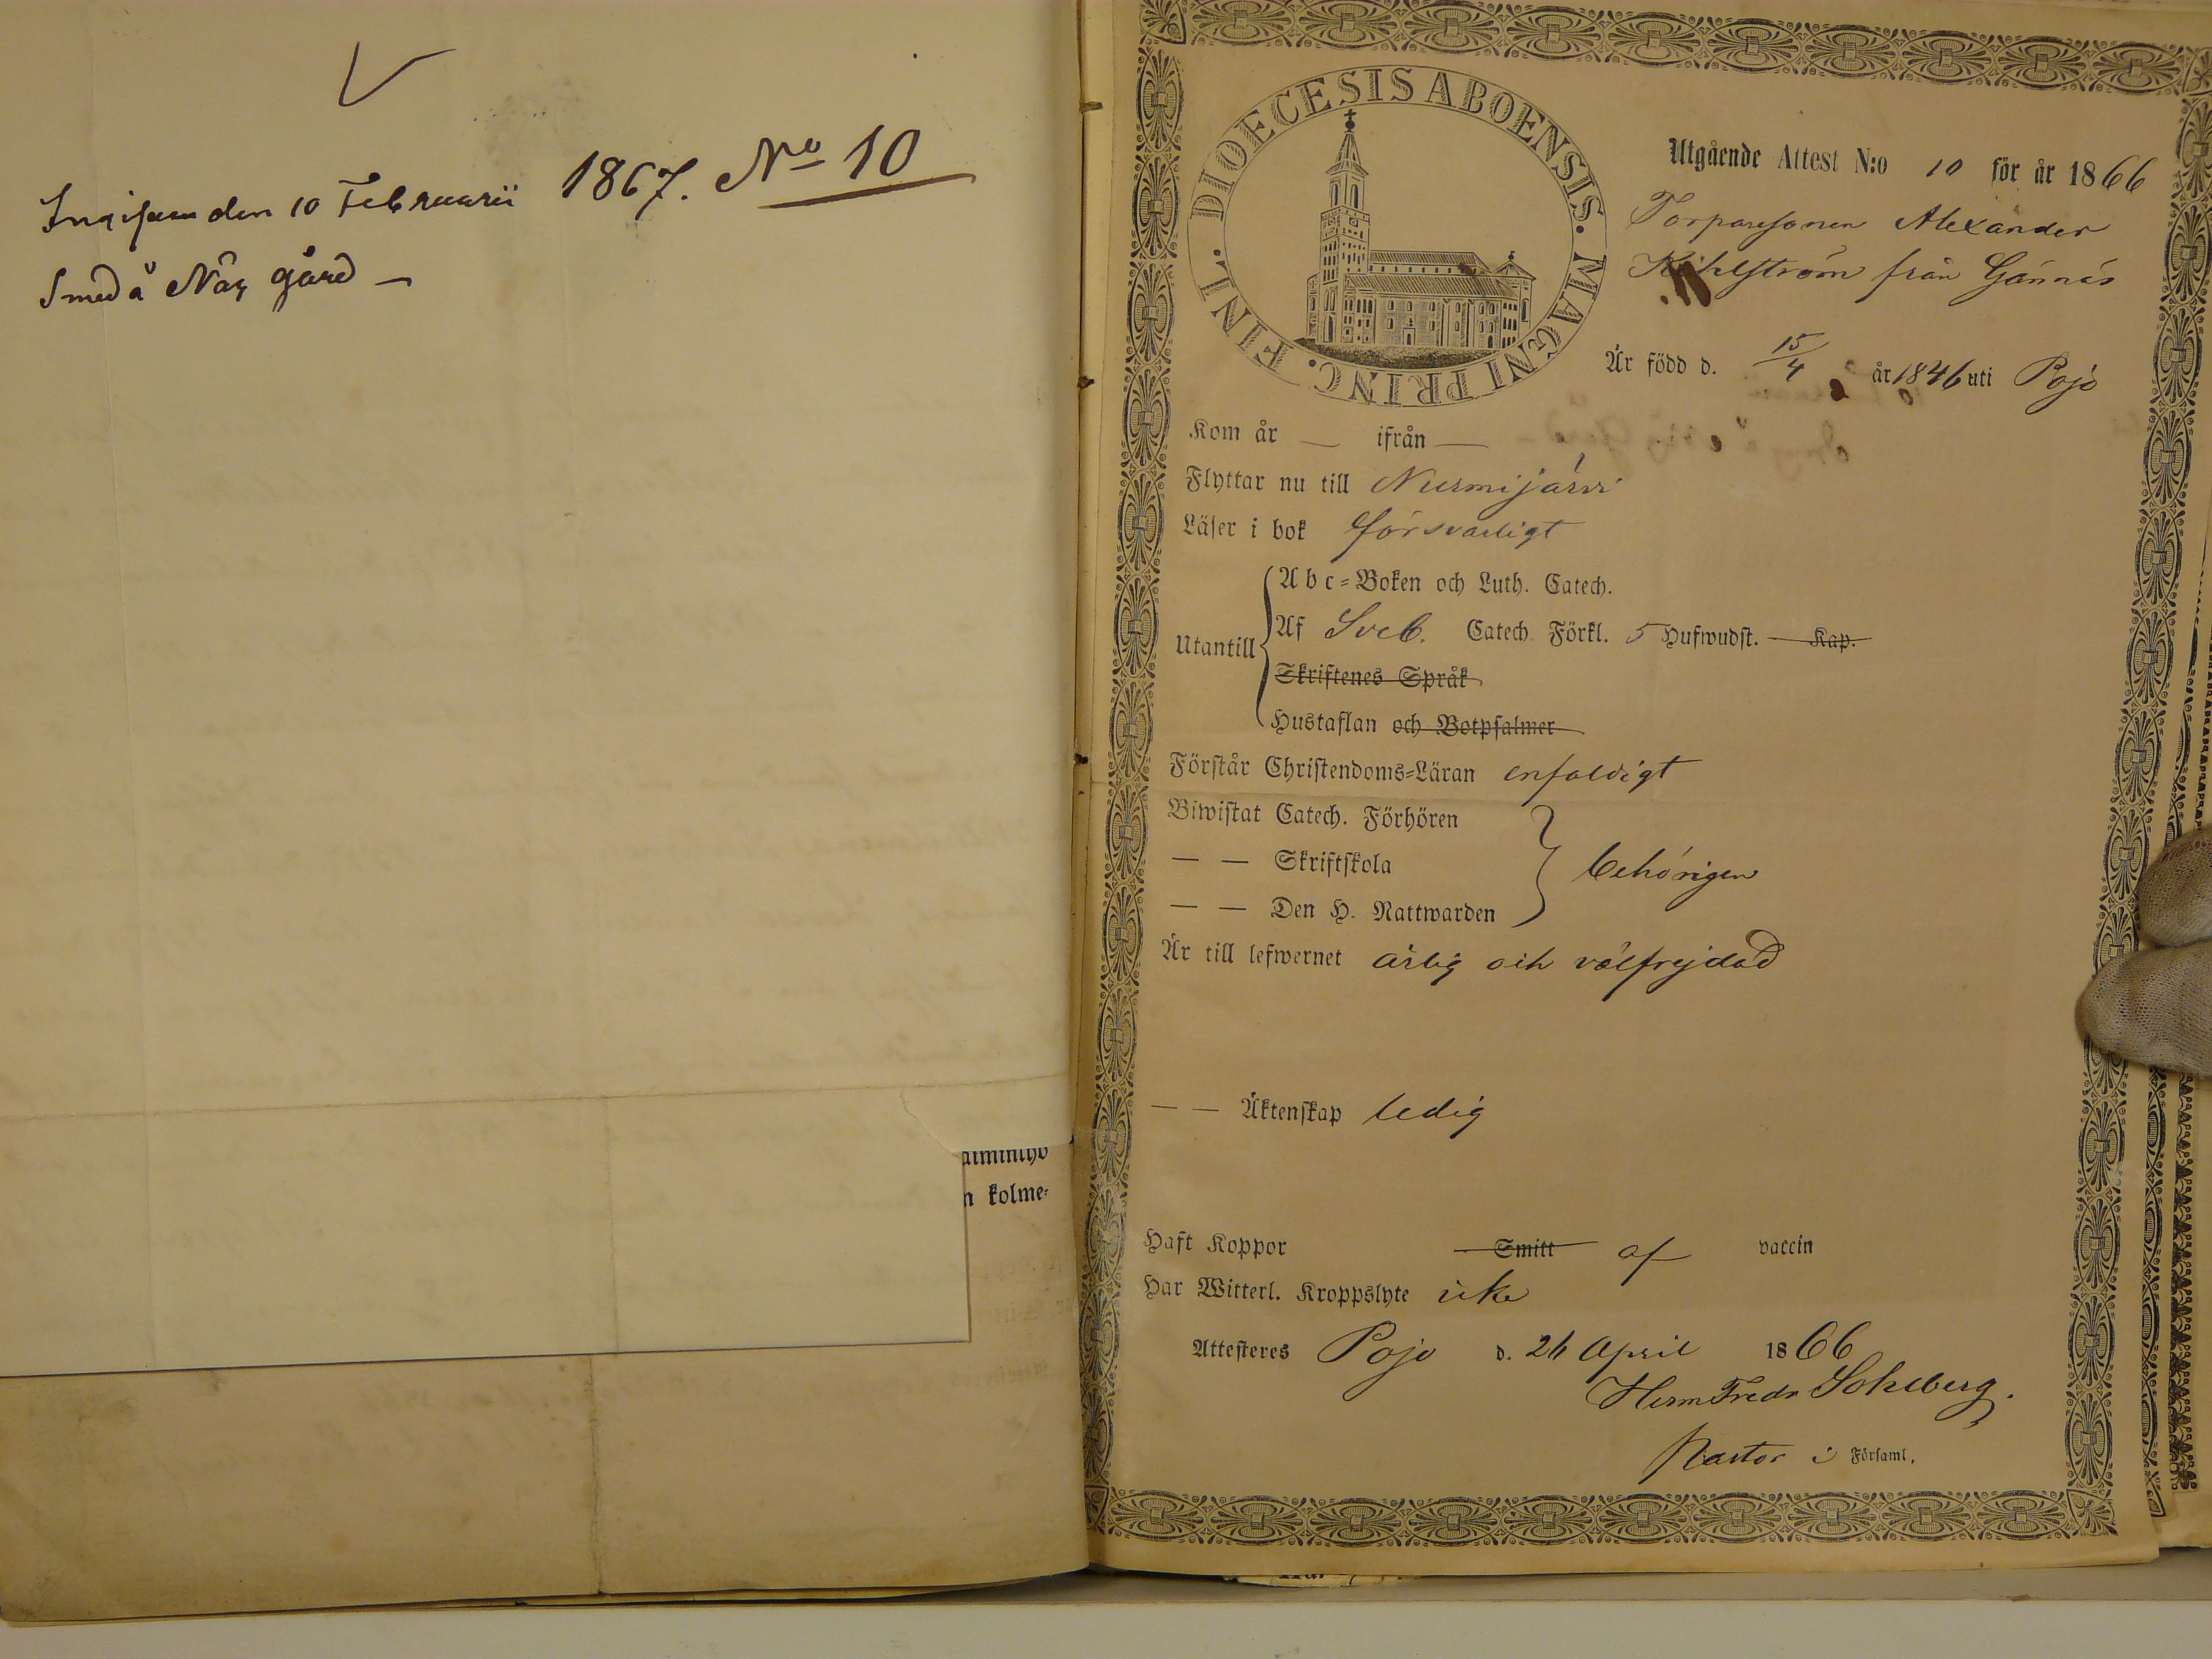 den 10 Februarii 1867. No 10
Smed å Näs gård —
aiminlyö
n kolme-
DIOECESIS ABOENSIS. MAGNI PRINC. FINL.
Utgående Attest N:o 10 för år 1866
Torparesonen Alexander
Kihlström från Gännäs
Är född d. 15/4 år 1846 uti Pojo
Kom år — ifrån —
Flyttar nu till Nurmijärvi
Läser i bok försvarligt
Utantill
Abc=Boken och Luth. Catech.
Af Sveb. Catech Förkl. 5 Hufwudst. — Kap.
Skriftenes Språk
Hustaflan och Botpsalmer
Förstår Christendoms=Läran enfaldigt
Biwistat Catech. Förhören
— — Skriftskola behörigen
— — Den H. Nattwarden
Är till lefwernet ärlig och välfrejdad
— — Äktenskap ledig
Haft Koppor Smitt af vaccin
Har Witterl. Kroppslyte icke
Attesteres Pojo d. 26 April 1866
Herm Fredr Sohlberg.
Pastor i Församl.